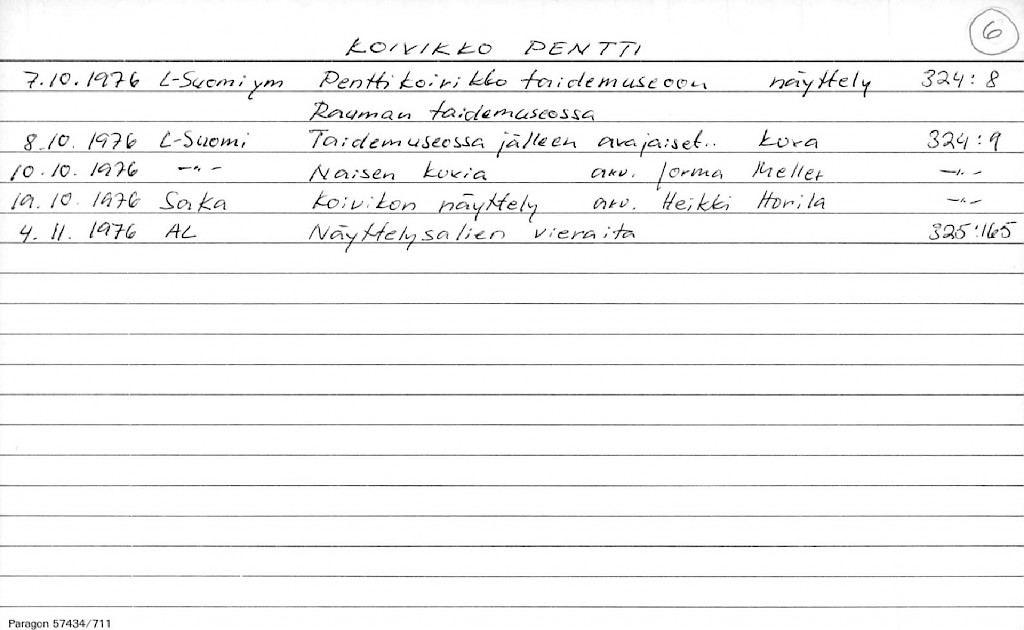 6
KOIVIKKO PENTTI
7.10.1976 L-Suomi ym Pentti Koivikko taidemuseoon näyttely 324:8
Rauman taidemuseossa
8.10.1976 L-Suomi Taidemuseossa jälleen avajaiset.. kuva 324:9
10.10.1976 —"— Naisen kuvia arv. Jorma Meller —"—
19.10.1976 SaKa Koivikon näyttely arv. Heikki Horila —"—
4.11.1976 AL Näyttelysalien vieraita 325:165
Paragon 57434/711